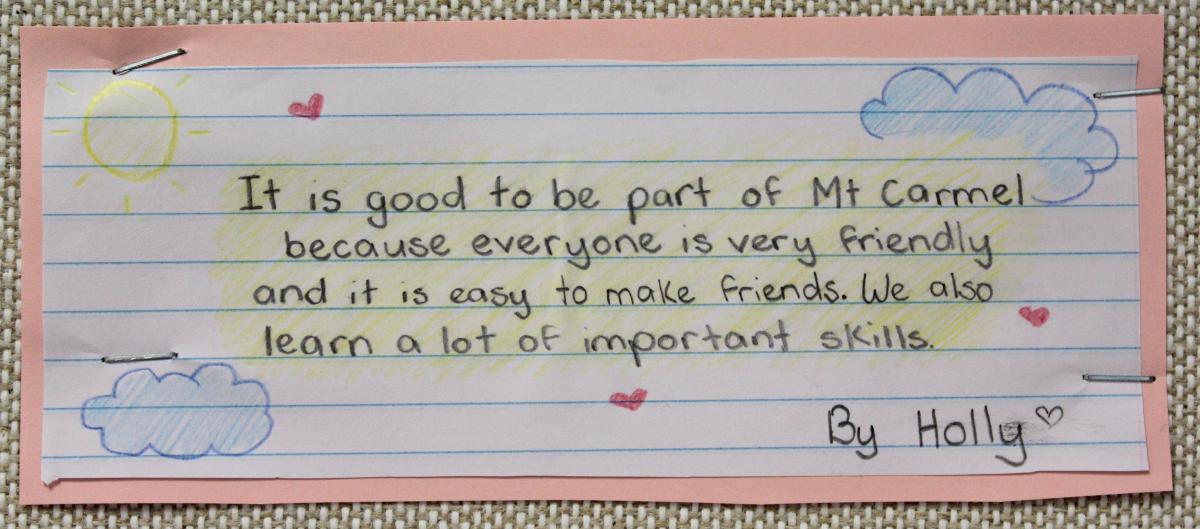 It is good to be part of Mt Carmel
because everyone is very friendly
and it is easy to make friends. We also
learn a lot of important skills.
By Holly